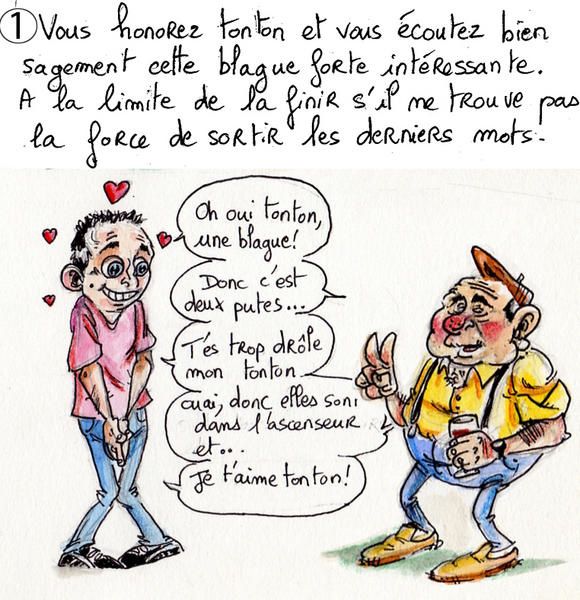 ① Vous honorez tonton et vous écoutez bien
sagement cette blague forte intéressante.
A la limite de la finir s'il ne trouve pas
la force de sortir les derniers mots.
Oh oui tonton,
une blague!
Donc c'est
deux putes...
T'es trop drôle
mon tonton
ouai, donc elles sont
dans l'ascenseur
et...
Je t'aime tonton!